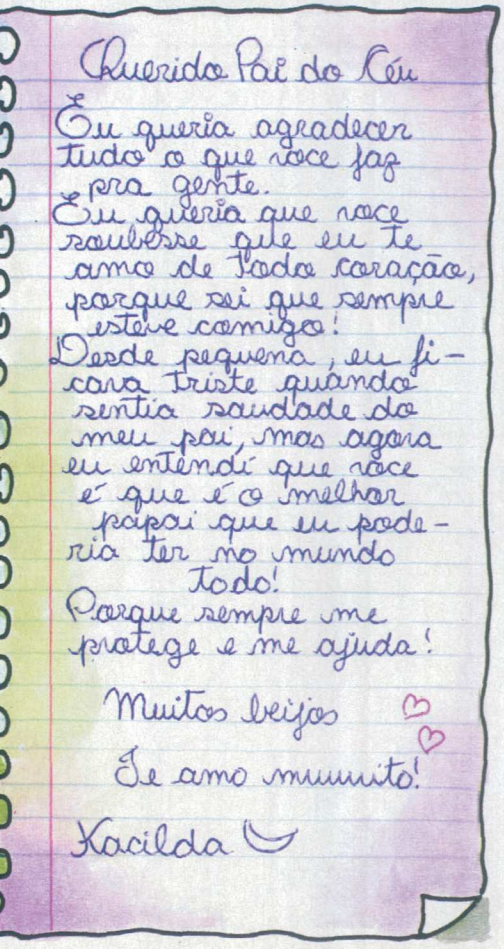 Querido Pai do Céu
Eu queria agradecer
tudo o que voce faz
pra gente.
Eu queria que voce
soubesse que eu te
amo de todo coração,
porque sei que sempre
esteve comigo!
Desde pequena, eu fi-
cava triste quando
sentia saudade do
meu pai, mas agora
eu entendi que voce
é que é o melhor
papai que eu pode-
ria ter no mundo
todo!
Porque sempre me
protege e me ajuda!
Muitos beijos
Te amo muuuito!
Kacilda